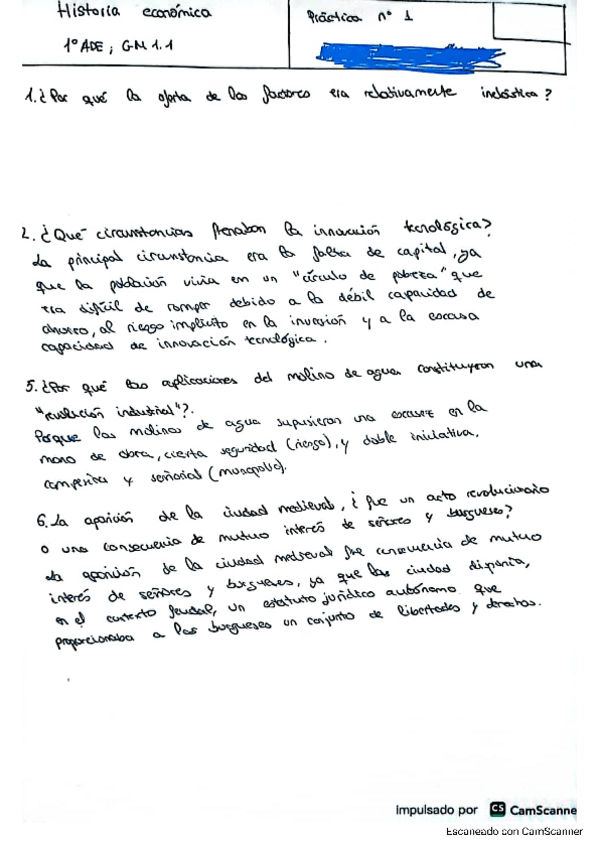 Historia económica
Práctica nº 1
1º ADE ; GM 1.1
1. ¿Por qué la oferta de los factores era relativamente inelástica?
2. ¿Qué circunstancias frenaban la innovación tecnológica?
La principal circunstancia era la falta de capital, ya
que la población vivía en un "círculo de pobreza" que
era difícil de romper debido a la débil capacidad de
ahorro, al riesgo implícito en la inversión y a la escasa
capacidad de innovación tecnológica.
5. ¿Por qué las aplicaciones del molino de agua constituyeron una
"revolución industrial"?.
Porque los molinos de agua supusieron una escasez en la
mano de obra, cierta seguridad (riesgo), y doble iniciativa,
campesina y señorial (monopolio).
6. La aparición de la ciudad medieval, ¿fue un acto revolucionario
o una consecuencia de mutuo interés de señores y burgueses?
La aparición de la ciudad medieval fue consecuencia de mutuo
interés de señores y burgueses, ya que las ciudad disponía,
en el contexto feudal, un estatuto jurídico autónomo que
proporcionaba a los burgueses un conjunto de libertades y derechos.
Impulsado por CS CamScanne
Escaneado con CamScanner